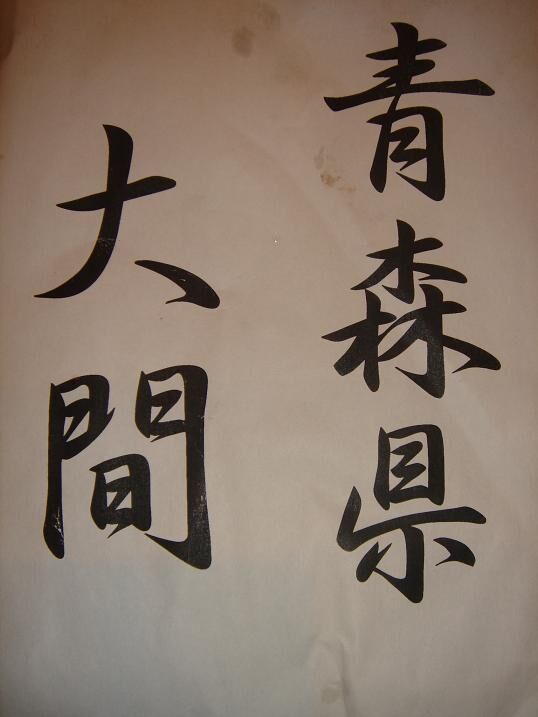 青森県
大間